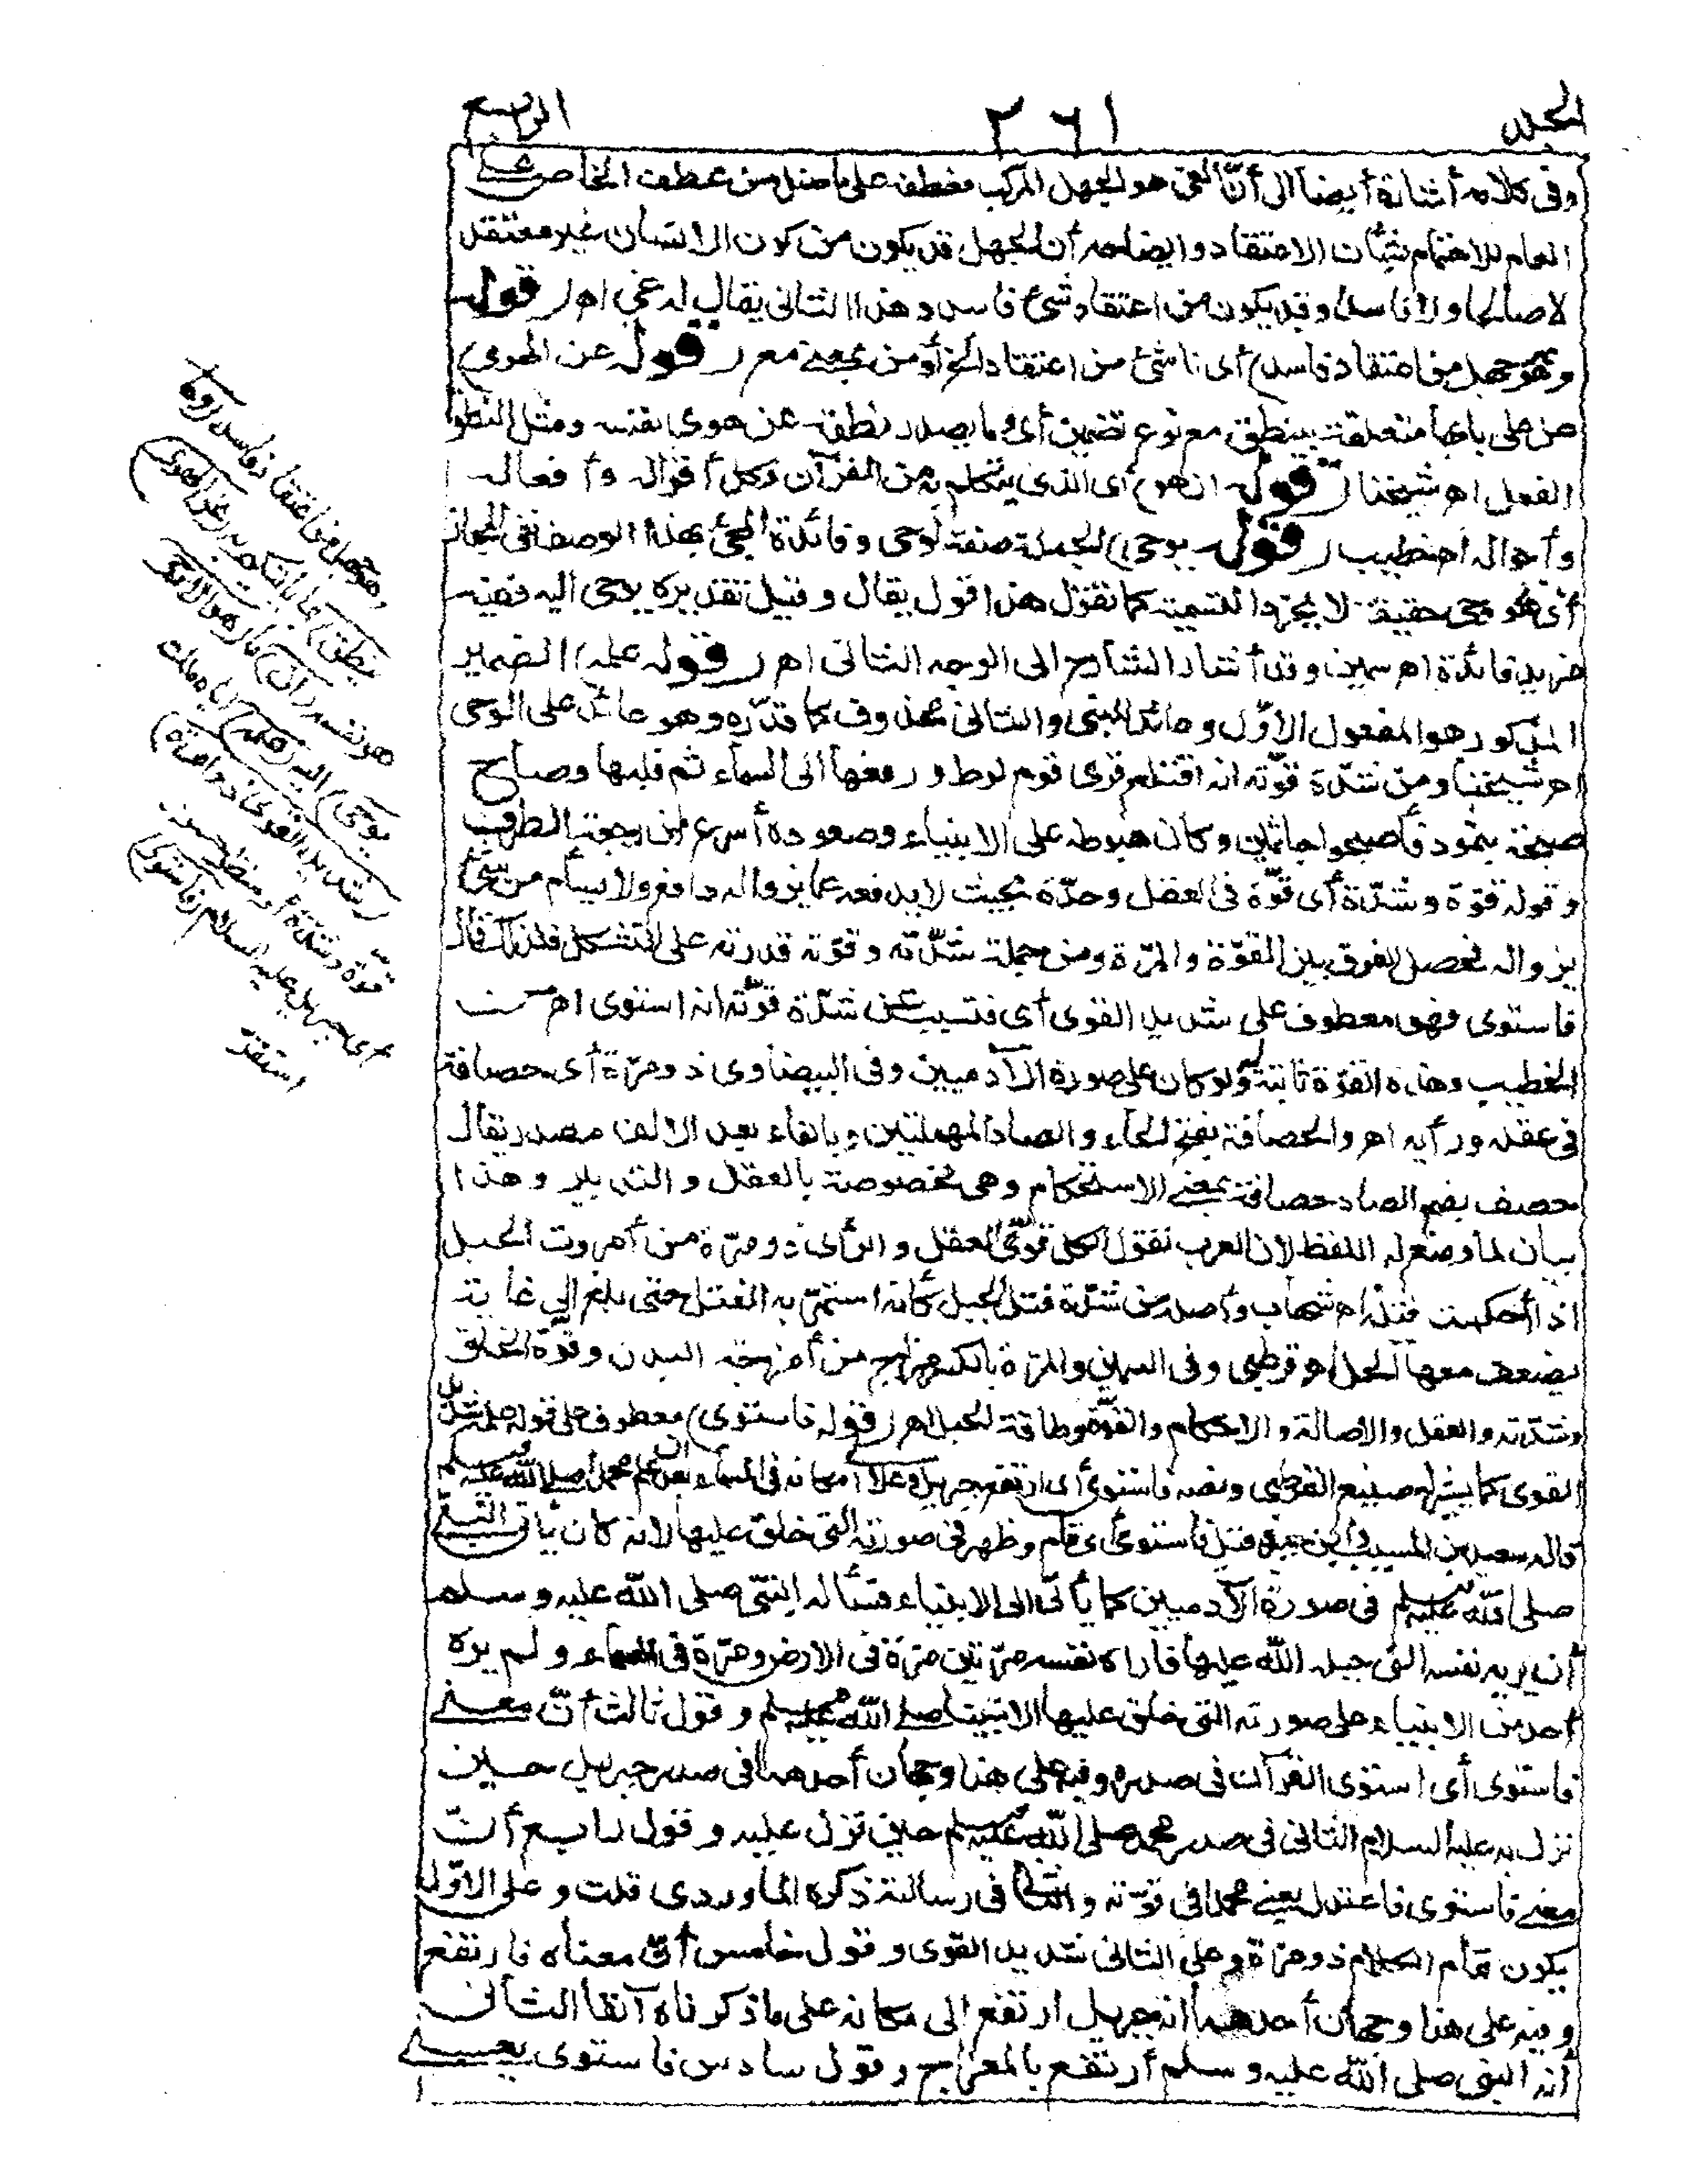 الجلد ٢٦١ الرابع
وفى كلامه أشارة أيضا الى أنّ الغى هو الجهل المركب فعطفه على ماضل من عطف الخاص على
العام للاهتمام بشأن الاعتقاد وايضاحه أن الجهل قد يكون من كون الانسان غير معتقد
لا صالحا ولا فاسدا وقد يكون من اعتقاد شئ فاسد وهذا الثانى يقال له غى اه (قوله
وهو جهل من اعتقاد فاسد) أى ناشئ من اعتقاد الخ أو من بمعنى مع (قوله عن الهوى)
عن على بابها متعلقة بينطق مع نوع تضمين أى وما يصدر نطقه عن هوى نفسه ومثل النطق
الفعل اه شيخنا (قوله ان هو) أى الذى يتكلم به من القرآن وكل أقواله وأفعاله
وأحواله اه خطيب (قوله يوحى) الجملة صفة لوحى وفائدة المجئ بهذا الوصف نفى المجاز
أى هو وحى حقيقة لا بمجرد التسمية كما تقول هذا قول يقال وقيل تقديره يوحى اليه ففيه
مزيد فائدة اه سمين وقد أشار الشارح الى الوجه الثانى اه (قوله علمه) الضمير
المذكور هو المفعول الاوّل وعائد للنبى والثانى محذوف كما قدّره وهو عائد على الوحى
اه شيخنا ومن شدّة قوّته انه اقتلع قرى قوم لوط ورفعها الى السماء ثم قلبها وصاح
صيحة بثمود فأصبحوا جاثمين وكان هبوطه على الانبياء وصعوده أسرع من رجعة الطرف
وقوله قوّة وشدّة أى قوّة فى العقل وحدّة بحيث لا يدفعه عما يزواله دافع ولا يسأم من شئ
يزواله فحصل الفرق بين القوّة والمرّة ومن جملة شدّته وقوّته قدرته على التشكل فلذلك قال
فاستوى فهو معطوف على شديد القوى أى فتسبب عن شدّة قوّته انه استوى اه من
الخطيب وهذه القوّة ثابتة له ولو كان على صورة الآدميين وفى البيضاوى ذو مرّة أى حصافة
فى عقله ورأيه اه والحصافة بفتح الحاء والصاد المهملتين وبالفاء بعد الالف مصدر يقال
حصف بضم الصاد حصافة بمعنى الاستحكام وهى مخصوصة بالعقل والتدبير وهذا
بيان لما وضع له اللفظ لان العرب تقول لكل قوىّ العقل والرأى ذو مرّة من أمررت الحبل
اذا أحكمت فتله اه شهاب وأصله من شدّة فتل الحبل كأنه استمرّ به الفتل حتى بلغ الى غاية
يضعف معها الحل اه قرطبى وفى السمين والمرّة بالكسر مزاج من أمزجة البدن وقوّة الخلق
وشدّته والعقل والاصالة والاحكام والقوّة وطاقة الحبل اه (قوله فاستوى) معطوف على قوله علمه شديد
القوى كما يشير له صنيع القرطبى ونصه فاستوى أى ارتفع جبريل وعلا الى مكانه فى السماء بعد أن علم محمدا صلى الله عليه وسلم
قاله سعيد بن المسيب وابن جبير وقيل فاستوى أى قام وظهر فى صورته التى خلق عليها لانه كان يأتى النبىّ
صلى الله عليه وسلم فى صورة الآدميين كما يأتى الى الانبياء فسأله النبىّ صلى الله عليه وسلم
أن يريه نفسه التى جبله الله عليها فأراه نفسه مرّتين مرّة فى الارض ومرّة فى السماء ولم يره
أحد من الانبياء على صورته التى خلق عليها الا نبينا صلى الله عليه وسلم وقول ثالث أنّ معنى
فاستوى أى استوى القرآن فى صدره وفيه على هذا وجهان أحدهما فى صدر جبريل حين
نزل به عليه السلام الثانى فى صدر محمد صلى الله عليه وسلم حين نزل عليه وقول رابع أنّ
معنى فاستوى فاعتدل يعنى محمدا فى قوّته والثانى فى رسالته ذكره الماوردى قلت وعلى الاوّل
يكون تمام الكلام ذو مرّة وعلى الثانى شديد القوى وقول خامس أنّ معناه فارتفع
وفيه على هذا وجهان أحدهما انه جبريل ارتفع الى مكانه على ما ذكرناه آنفا الثانى
أنه النبى صلى الله عليه وسلم أرتفع بالمعراج وقول سادس فاستوى يعنى
وهو جهل من اعتقاد فاسد (وما
ينطق) بما يأتيكم به (عن الهوى)
هوى نفسه (ان) ما (هو الا وحى
يوحى) اليه (علمه) اياه ملك
(شديد القوى ذو مرّة)
قوّة وشدّة أو منظر حسن
أى جبريل عليه السلام (فاستوى)
استقرّ